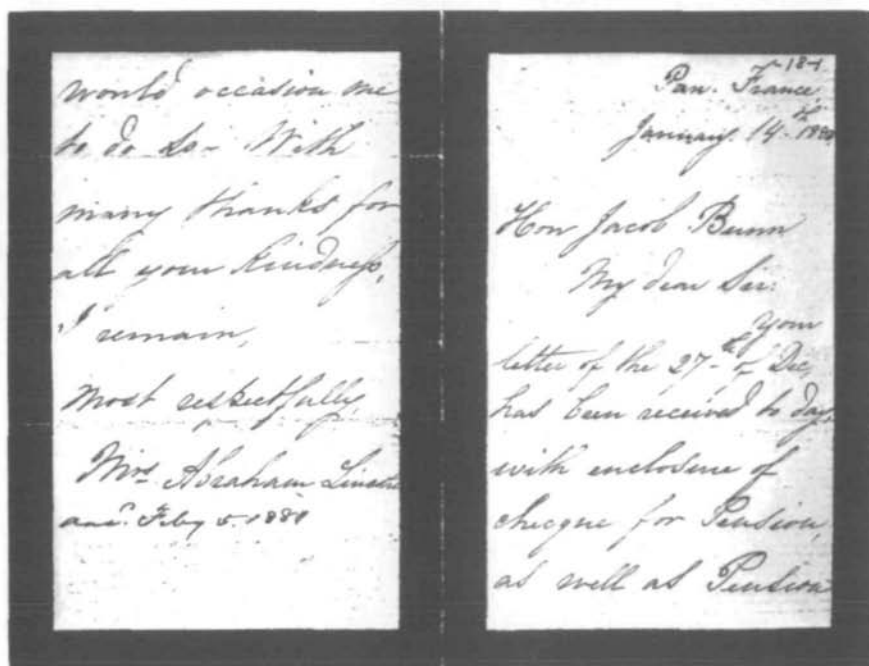 would occasion me
to do so - With
many thanks for
all your kindness,
I remain,
most respectfully,
Mrs Abraham Lincoln
ansd. Feby 5. 1880
Pau. France,
January. 14th 1880
Hon Jacob Bunn
My dear Sir:
Your
letter of the 27th of Dec,
has been received to day,
with enclosure of
checque for Pension,
as well as Pension